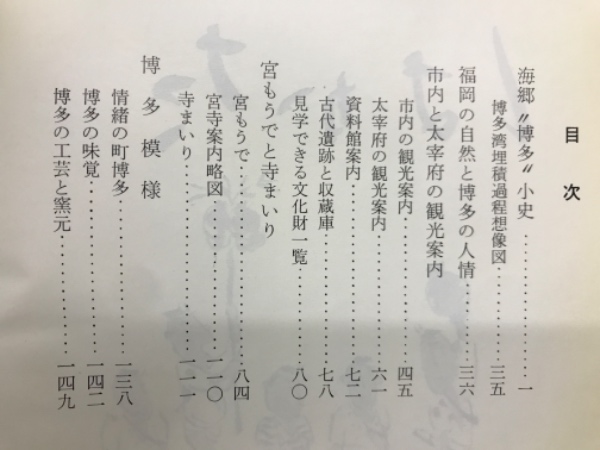 目次
海郷〝博多〟小史……………一
博多湾埋積過程想像図………三五
福岡の自然と博多の人情………三六
市内と太宰府の観光案内
市内の観光案内……………四五
太宰府の観光案内……………六一
資料館案内……………七二
古代遺跡と収蔵庫……………七八
見学できる文化財一覧…………八〇
宮もうでと寺まいり
宮もうで……………八四
宮寺案内略図……………一一〇
寺まいり……………一一一
博多模様
情緒の町博多……………一三八
博多の味覚……………一四二
博多の工芸と窯元……………一四九